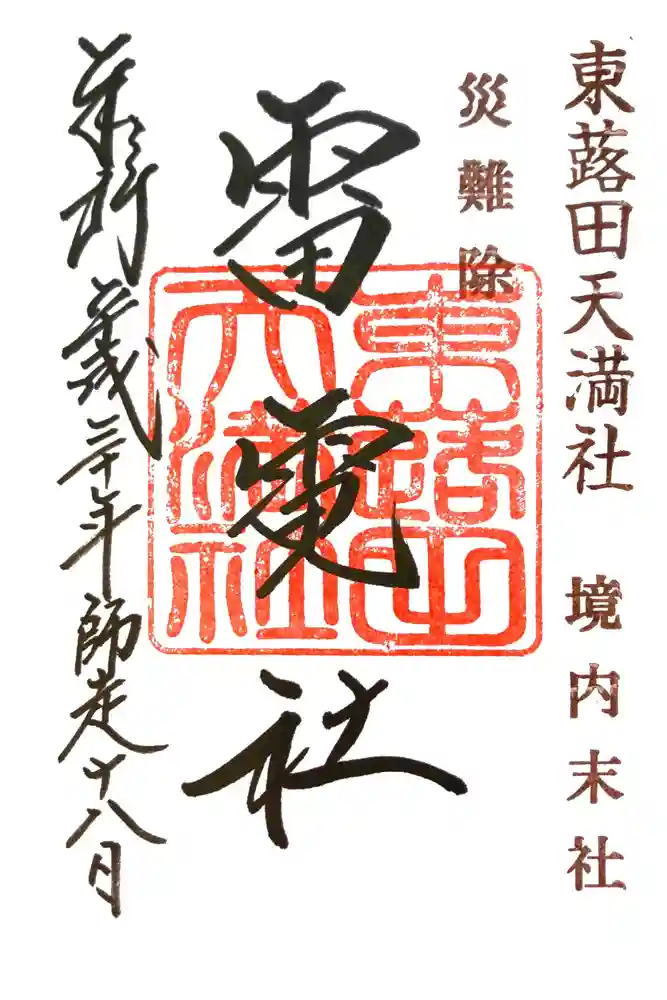 東蕗田天満社 境内末社
災難除
雷電社
平成三十年師走十八日
東蕗田天満社